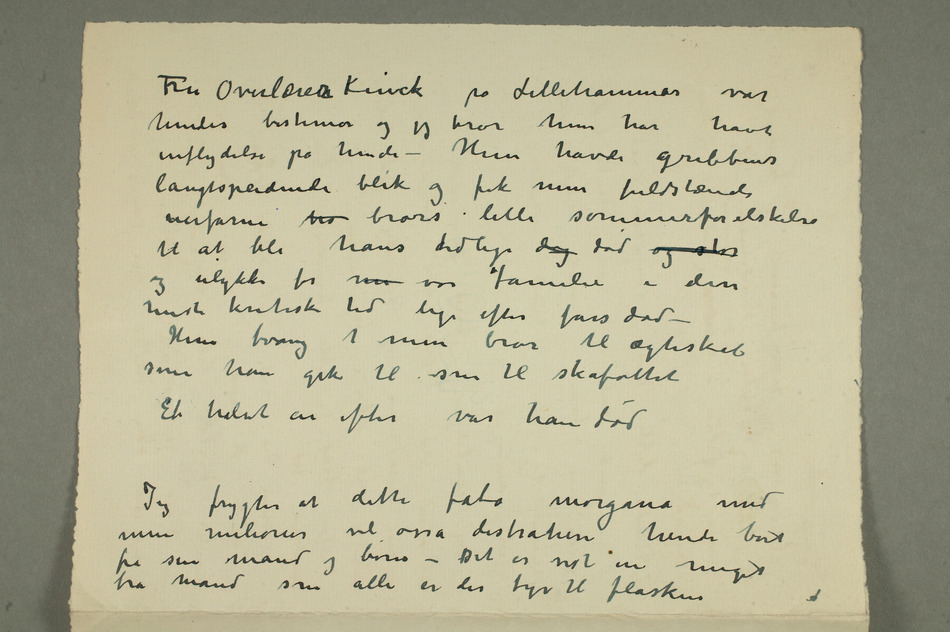 Fru Overlærer Kinck på Lillehammer var
hendes bestemor og jeg tror hun har havt
inflydelse på hende – Hun havde gribbens
langtspeidende blik og fik min fuldstændi
uerfarne bro brors lille sommerforelskelse
til at bli hans tidlige død død og stor
og ulykke for min vor familie i den
mest kritiske tid lige efter fars død –
Hun tvang min bror til ægteskab
som han gik til som til skafottet
Et halvt år efter var han død
Jeg frygter at dette fata morgana med
mine milioner vil også distrahere hende bort
fra sin mand og børn – Det er vist en meget
bra mand som alle er der tyr til flasken